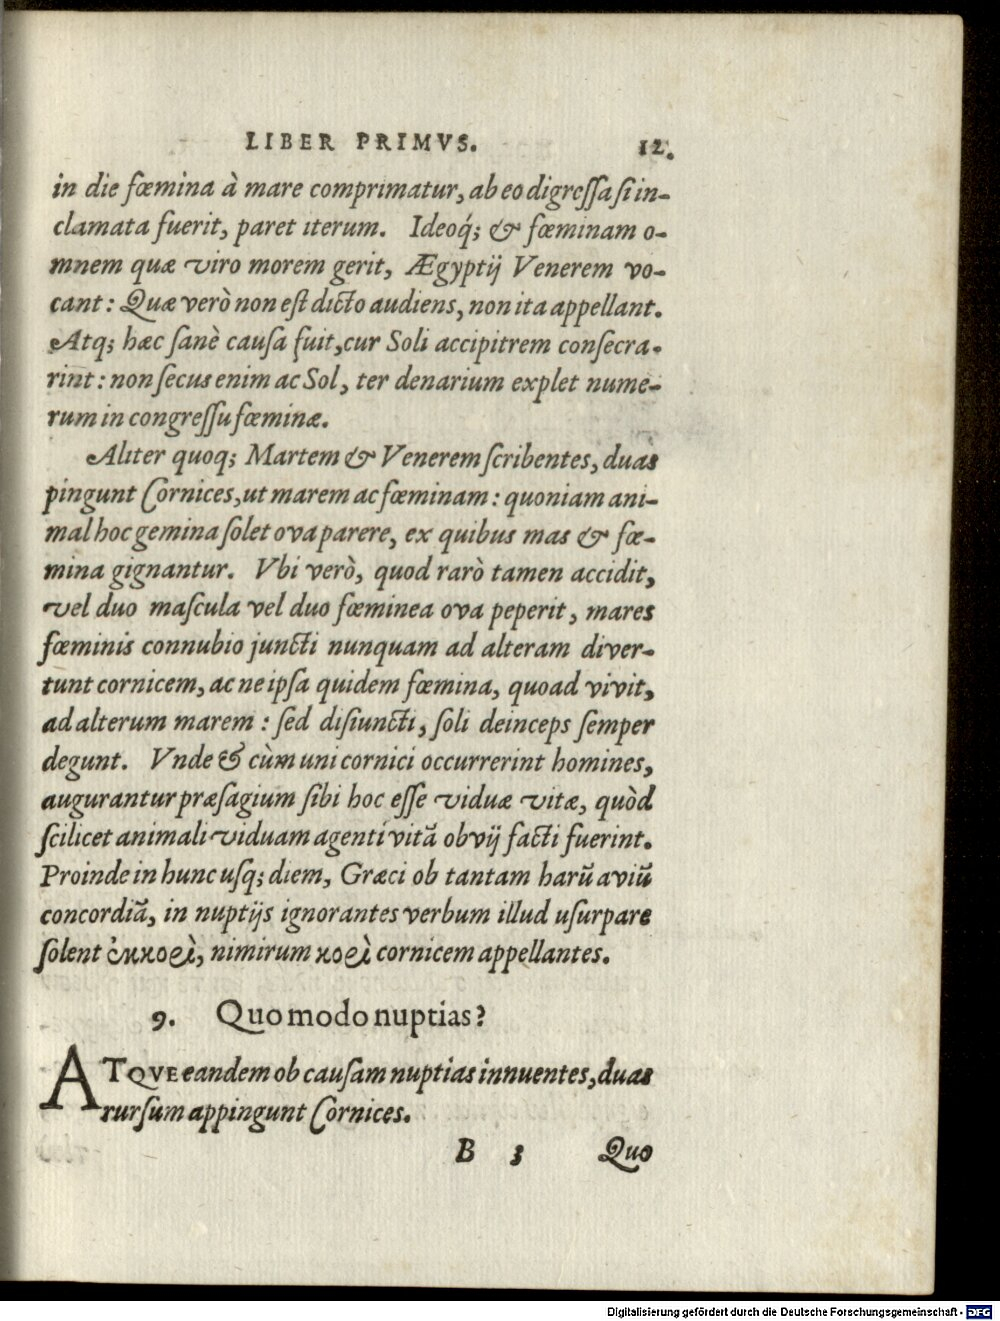 LIBER PRIMVS. 12.
in die fœmina à mare comprimatur, ab eo digreſſa ſi in-
clamata fuerit, paret iterum. Ideoq́; & fœminam o-
mnem quæ viro morem gerit, Ægyptij Venerem vo-
cant: Quæ verò non eſt dicto audiens, non ita appellant.
Atq; hæc ſanè cauſa fuit, cur Soli accipitrem conſecra-
rint: non ſecus enim ac Sol, ter denarium explet nume-
rum in congreſſu fœminæ.
Aliter quoq; Martem & Venerem ſcribentes, duas
pingunt Cornices, ut marem ac fœminam: quoniam ani-
mal hoc gemina ſolet ova parere, ex quibus mas & fœ-
mina gignantur. Vbi verò, quod rarò tamen accidit,
vel duo maſcula vel duo fœminea ova peperit, mares
fœminis connubio juncti nunquam ad alteram diver-
tunt cornicem, ac ne ipſa quidem fœmina, quoad vivit,
ad alterum marem: ſed diſiuncti, ſoli deinceps ſemper
degunt. Vnde & cùm uni cornici occurrerint homines,
augurantur præſagium ſibi hoc eſſe viduæ vitæ, quòd
ſcilicet animali viduam agenti vitā obvij facti fuerint.
Proinde in hunc uſq; diem, Græci ob tantam harū aviū
concordiā, in nuptijs ignorantes verbum illud uſurpare
ſolent ἐκκορὶ, nimirum κορὶ cornicem appellantes.
9. Quomodo nuptias?
ATQVE eandem ob cauſam nuptias innuentes, duas
rurſum appingunt Cornices.
B 3 Quo
Digitalisierung gefördert durch die Deutsche Forschungsgemeinschaft - DFG